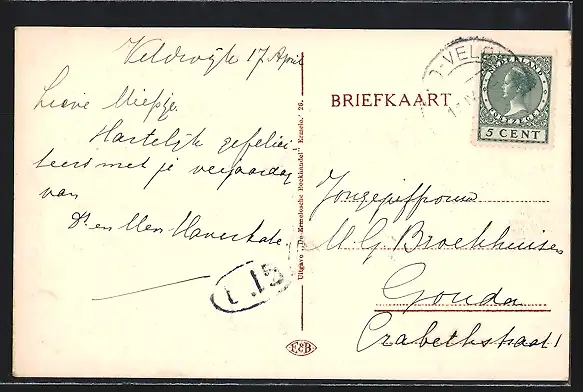 Veldwijk 17 April
Lieve Miepje.
Hartelijk gefelici
teerd met je verjaardag
van
Ds en Mev Haverkate.
Uitgave "De Ermelosche Boekhandel" Ermelo. 26.
E&B
BRIEFKAART
NEDERLAND
POSTZEGEL
5 CENT
Jongejuffrouw
M. G. Broekhuisen
Gouda
Crabethstraat 1